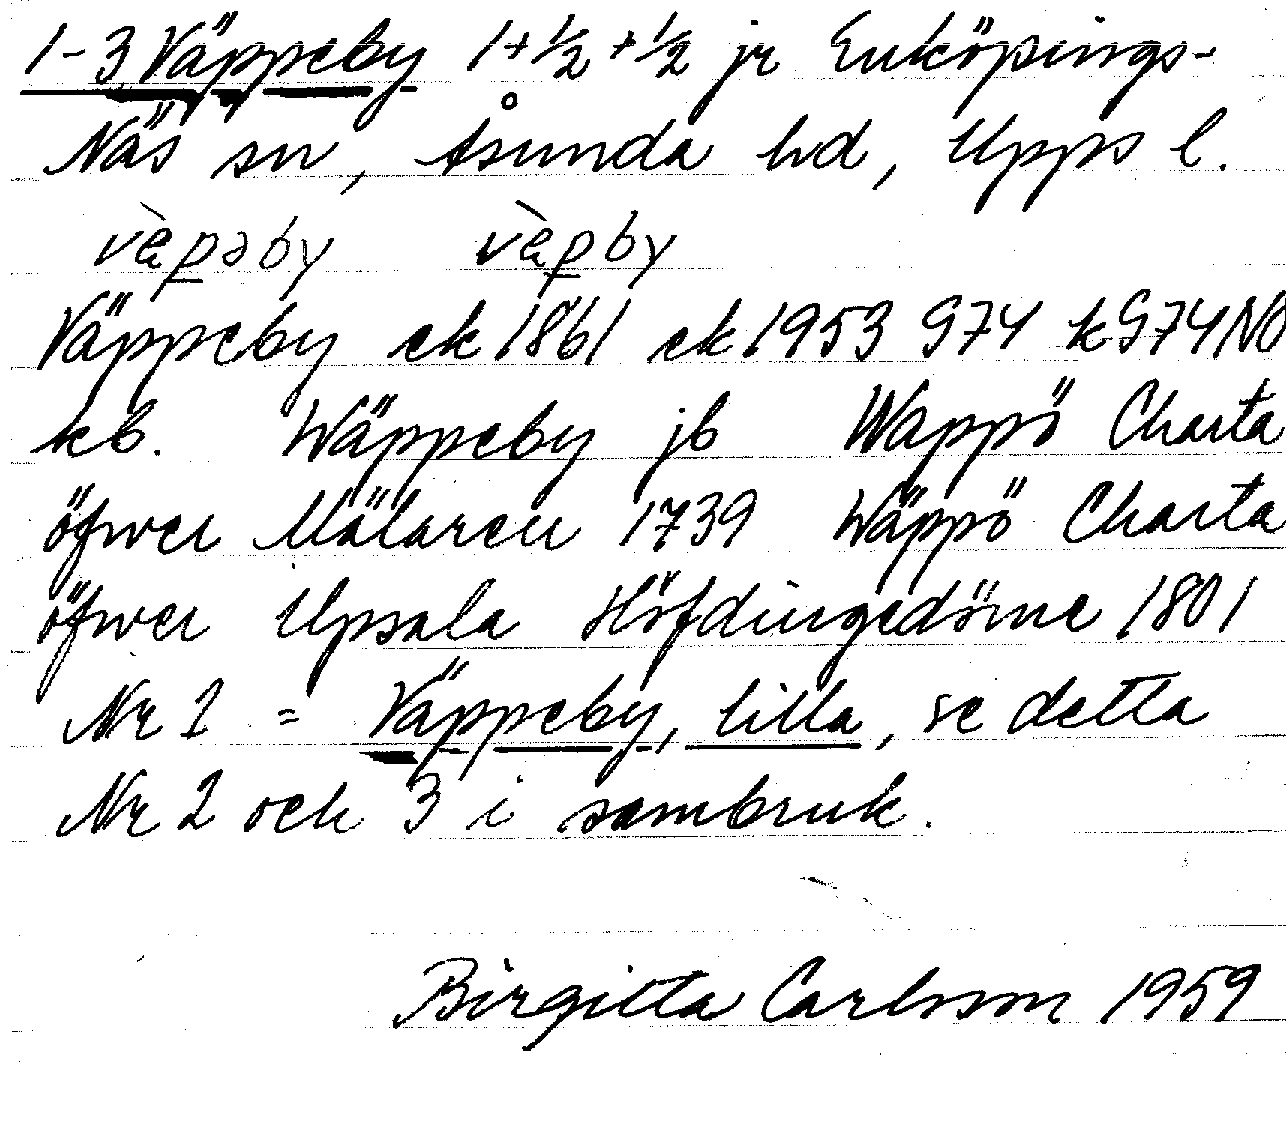 1-3 Väppeby 1+½+½ jr Enköpings-
Näs sn, Åsunda hd, Upps l.
vèpəby vèpby
Väppeby ek 1861 ek 1953 974 k 974 NO
kb. Wäppeby jb Wappö Charta
öfwer Mälaren 1739 Wäppö Charta
öfwer Upsala Höfdingedöme 1801
Nr 1 = Väppeby, lilla, se detta
Nr 2 och 3 i sambruk.
Birgitta Carlsson 1959